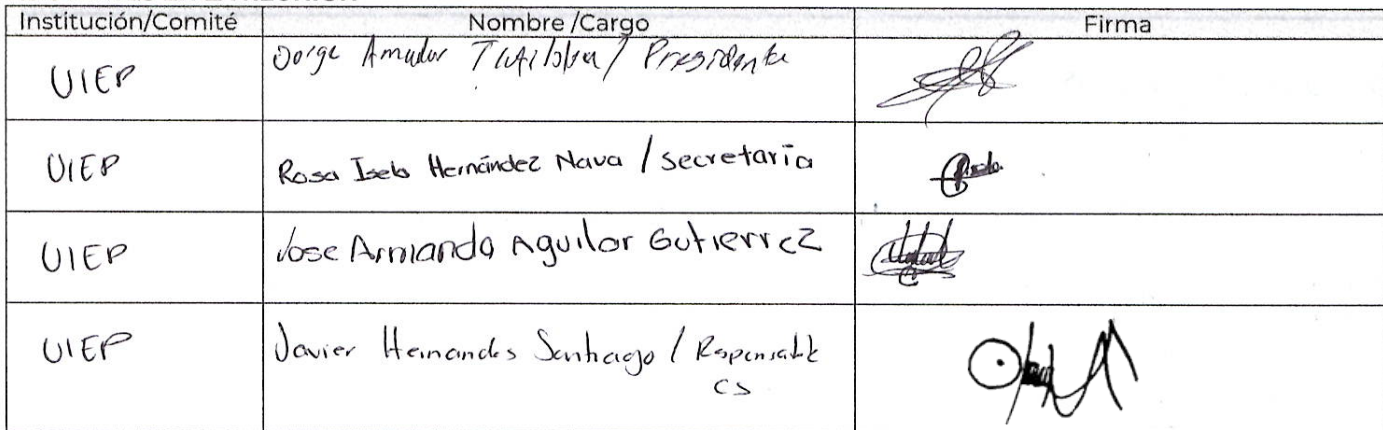 Institución/Comité Nombre /Cargo Firma
UIEP Jorge Amador / Presidente
UIEP Rosa Isela Hernández Nava / Secretaria
UIEP Jose Armando Aguilar Gutierrez
UIEP Javier Hernandes Santiago / Responsable
CS